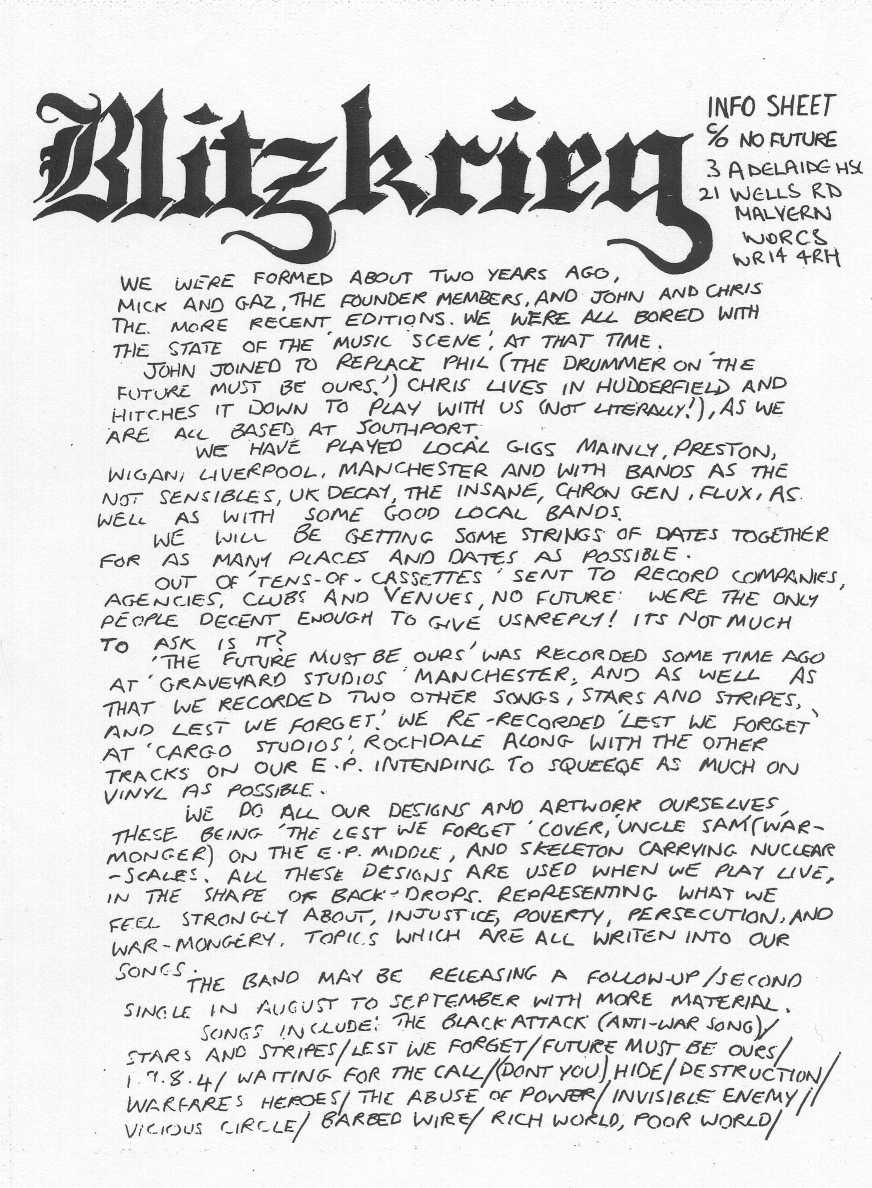 Blitzkrieg
INFO SHEET
C/O NO FUTURE
3 ADELAIDE HSE
21 WELLS RD
MALVERN
WORCS
WR14 4RH
WE WERE FORMED ABOUT TWO YEARS AGO,
MICK AND GAZ, THE FOUNDER MEMBERS, AND JOHN AND CHRIS
THE MORE RECENT EDITIONS. WE WERE ALL BORED WITH
THE STATE OF THE 'MUSIC SCENE', AT THAT TIME.
JOHN JOINED TO REPLACE PHIL (THE DRUMMER ON 'THE
FUTURE MUST BE OURS.') CHRIS LIVES IN HUDDERFIELD AND
HITCHES IT DOWN TO PLAY WITH US (NOT LITERALLY!), AS WE
ARE ALL BASED AT SOUTHPORT.
WE HAVE PLAYED LOCAL GIGS MAINLY, PRESTON,
WIGAN, LIVERPOOL, MANCHESTER AND WITH BANDS AS THE
NOT SENSIBLES, UK DECAY, THE INSANE, CHRON GEN, FLUX, AS
WELL AS WITH SOME GOOD LOCAL BANDS.
WE WILL BE GETTING SOME STRINGS OF DATES TOGETHER
FOR AS MANY PLACES AND DATES AS POSSIBLE.
OUT OF 'TENS-OF-CASSETTES' SENT TO RECORD COMPANIES,
AGENCIES, CLUBS AND VENUES, NO FUTURE: WERE THE ONLY
PEOPLE DECENT ENOUGH TO GIVE US A REPLY! ITS NOT MUCH
TO ASK IS IT?
'THE FUTURE MUST BE OURS' WAS RECORDED SOME TIME AGO
AT 'GRAVEYARD STUDIOS' MANCHESTER, AND AS WELL AS
THAT WE RECORDED TWO OTHER SONGS, 'STARS AND STRIPES,
AND LEST WE FORGET.' WE RE-RECORDED 'LEST WE FORGET'
AT 'CARGO STUDIOS', ROCHDALE ALONG WITH THE OTHER
TRACKS ON OUR E.P. INTENDING TO SQUEEQE AS MUCH ON
VINYL AS POSSIBLE.
WE DO ALL OUR DESIGNS AND ARTWORK OURSELVES,
THESE BEING 'THE LEST WE FORGET' COVER, 'UNCLE SAM' (WAR-
MONGER) ON THE E.P. MIDDLE, AND SKELETON CARRYING NUCLEAR
-SCALES. ALL THESE DESIGNS ARE USED WHEN WE PLAY LIVE,
IN THE SHAPE OF BACK-DROPS. REPRESENTING WHAT WE
FEEL STRONGLY ABOUT, INJUSTICE, POVERTY, PERSECUTION, AND
WAR-MONGERY. TOPICS WHICH ARE ALL WRITEN INTO OUR
SONGS.
THE BAND MAY BE RELEASING A FOLLOW-UP/SECOND
SINGLE IN AUGUST TO SEPTEMBER WITH MORE MATERIAL.
SONGS INCLUDE: THE BLACK ATTACK (ANTI-WAR SONG)/
STARS AND STRIPES/LEST WE FORGET/FUTURE MUST BE OURS/
1.9.8.4/ WAITING FOR THE CALL/(DONT YOU) HIDE/DESTRUCTION/
WARFARES HEROES/ THE ABUSE OF POWER/INVISIBLE ENEMY//
VICIOUS CIRCLE/ BARBED WIRE/ RICH WORLD, POOR WORLD/